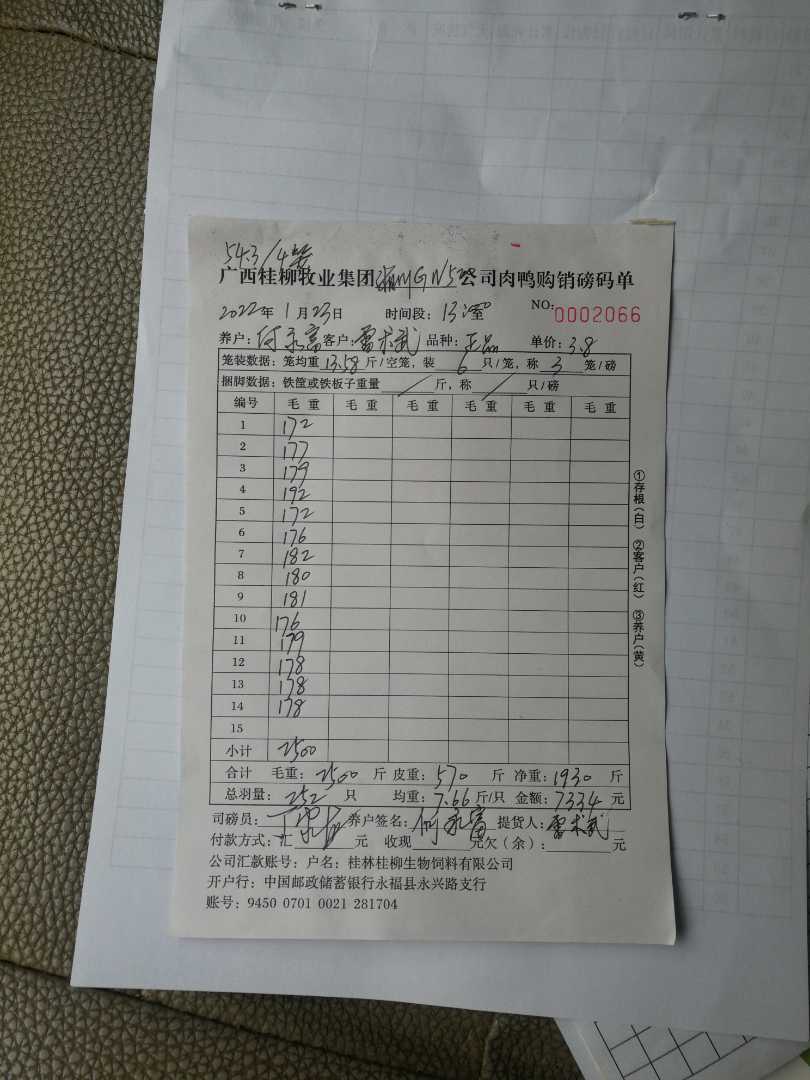 54.3/4
广西桂柳牧业集团 公司肉鸭购销磅码单
2022年 1月23日 时间段: 13 NO:0002066
养户:何永富 客户:雷术武 品种:正品 单价:3.8
笼装数据: 笼均重 13.58 斤/空笼, 装 6 只/笼, 称 3 笼/磅
捆脚数据: 铁筐或铁板子重量 / 斤, 称 / 只/磅
编号 毛重 毛重 毛重 毛重 毛重 毛重
1 172
2 177
3 179
4 192
5 172
6 176
7 182
8 180
9 181
10 176
11 179
12 178
13 178
14 178
15
小计 2500
合计 毛重: 2500 斤 皮重: 570 斤 净重: 1930 斤
总羽量: 252 只 均重: 7.66 斤/只 金额: 7334 元
司磅员: 养户签名: 何永富 提货人: 雷术武
付款方式: 汇 元 收现 元欠(余): 元
公司汇款账号: 户名: 桂林桂柳生物饲料有限公司
开户行: 中国邮政储蓄银行永福县永兴路支行
账号: 9450 0701 0021 281704
①存根(白) ②客户(红) ③养户(黄)